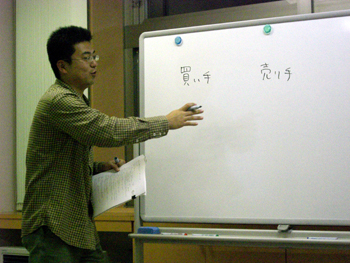 買い手 売り手